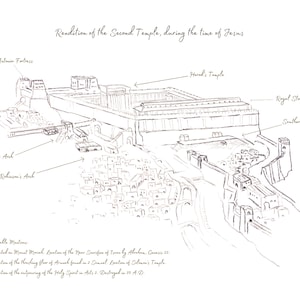 Rendition of the Second Temple, during the time of Jesus
Fortress
Herod's Temple
Royal
South
Arch
Robinson's Arch
Mount Moriah. Location of the Near Sacrifice of Isaac by Abraham, Genesis 22
of the threshing floor of Araunah found in 2 Samuel. Location of Solomon's Temple
of the outpouring of the Holy Spirit in Acts 2. Destroyed in 70 A.D.